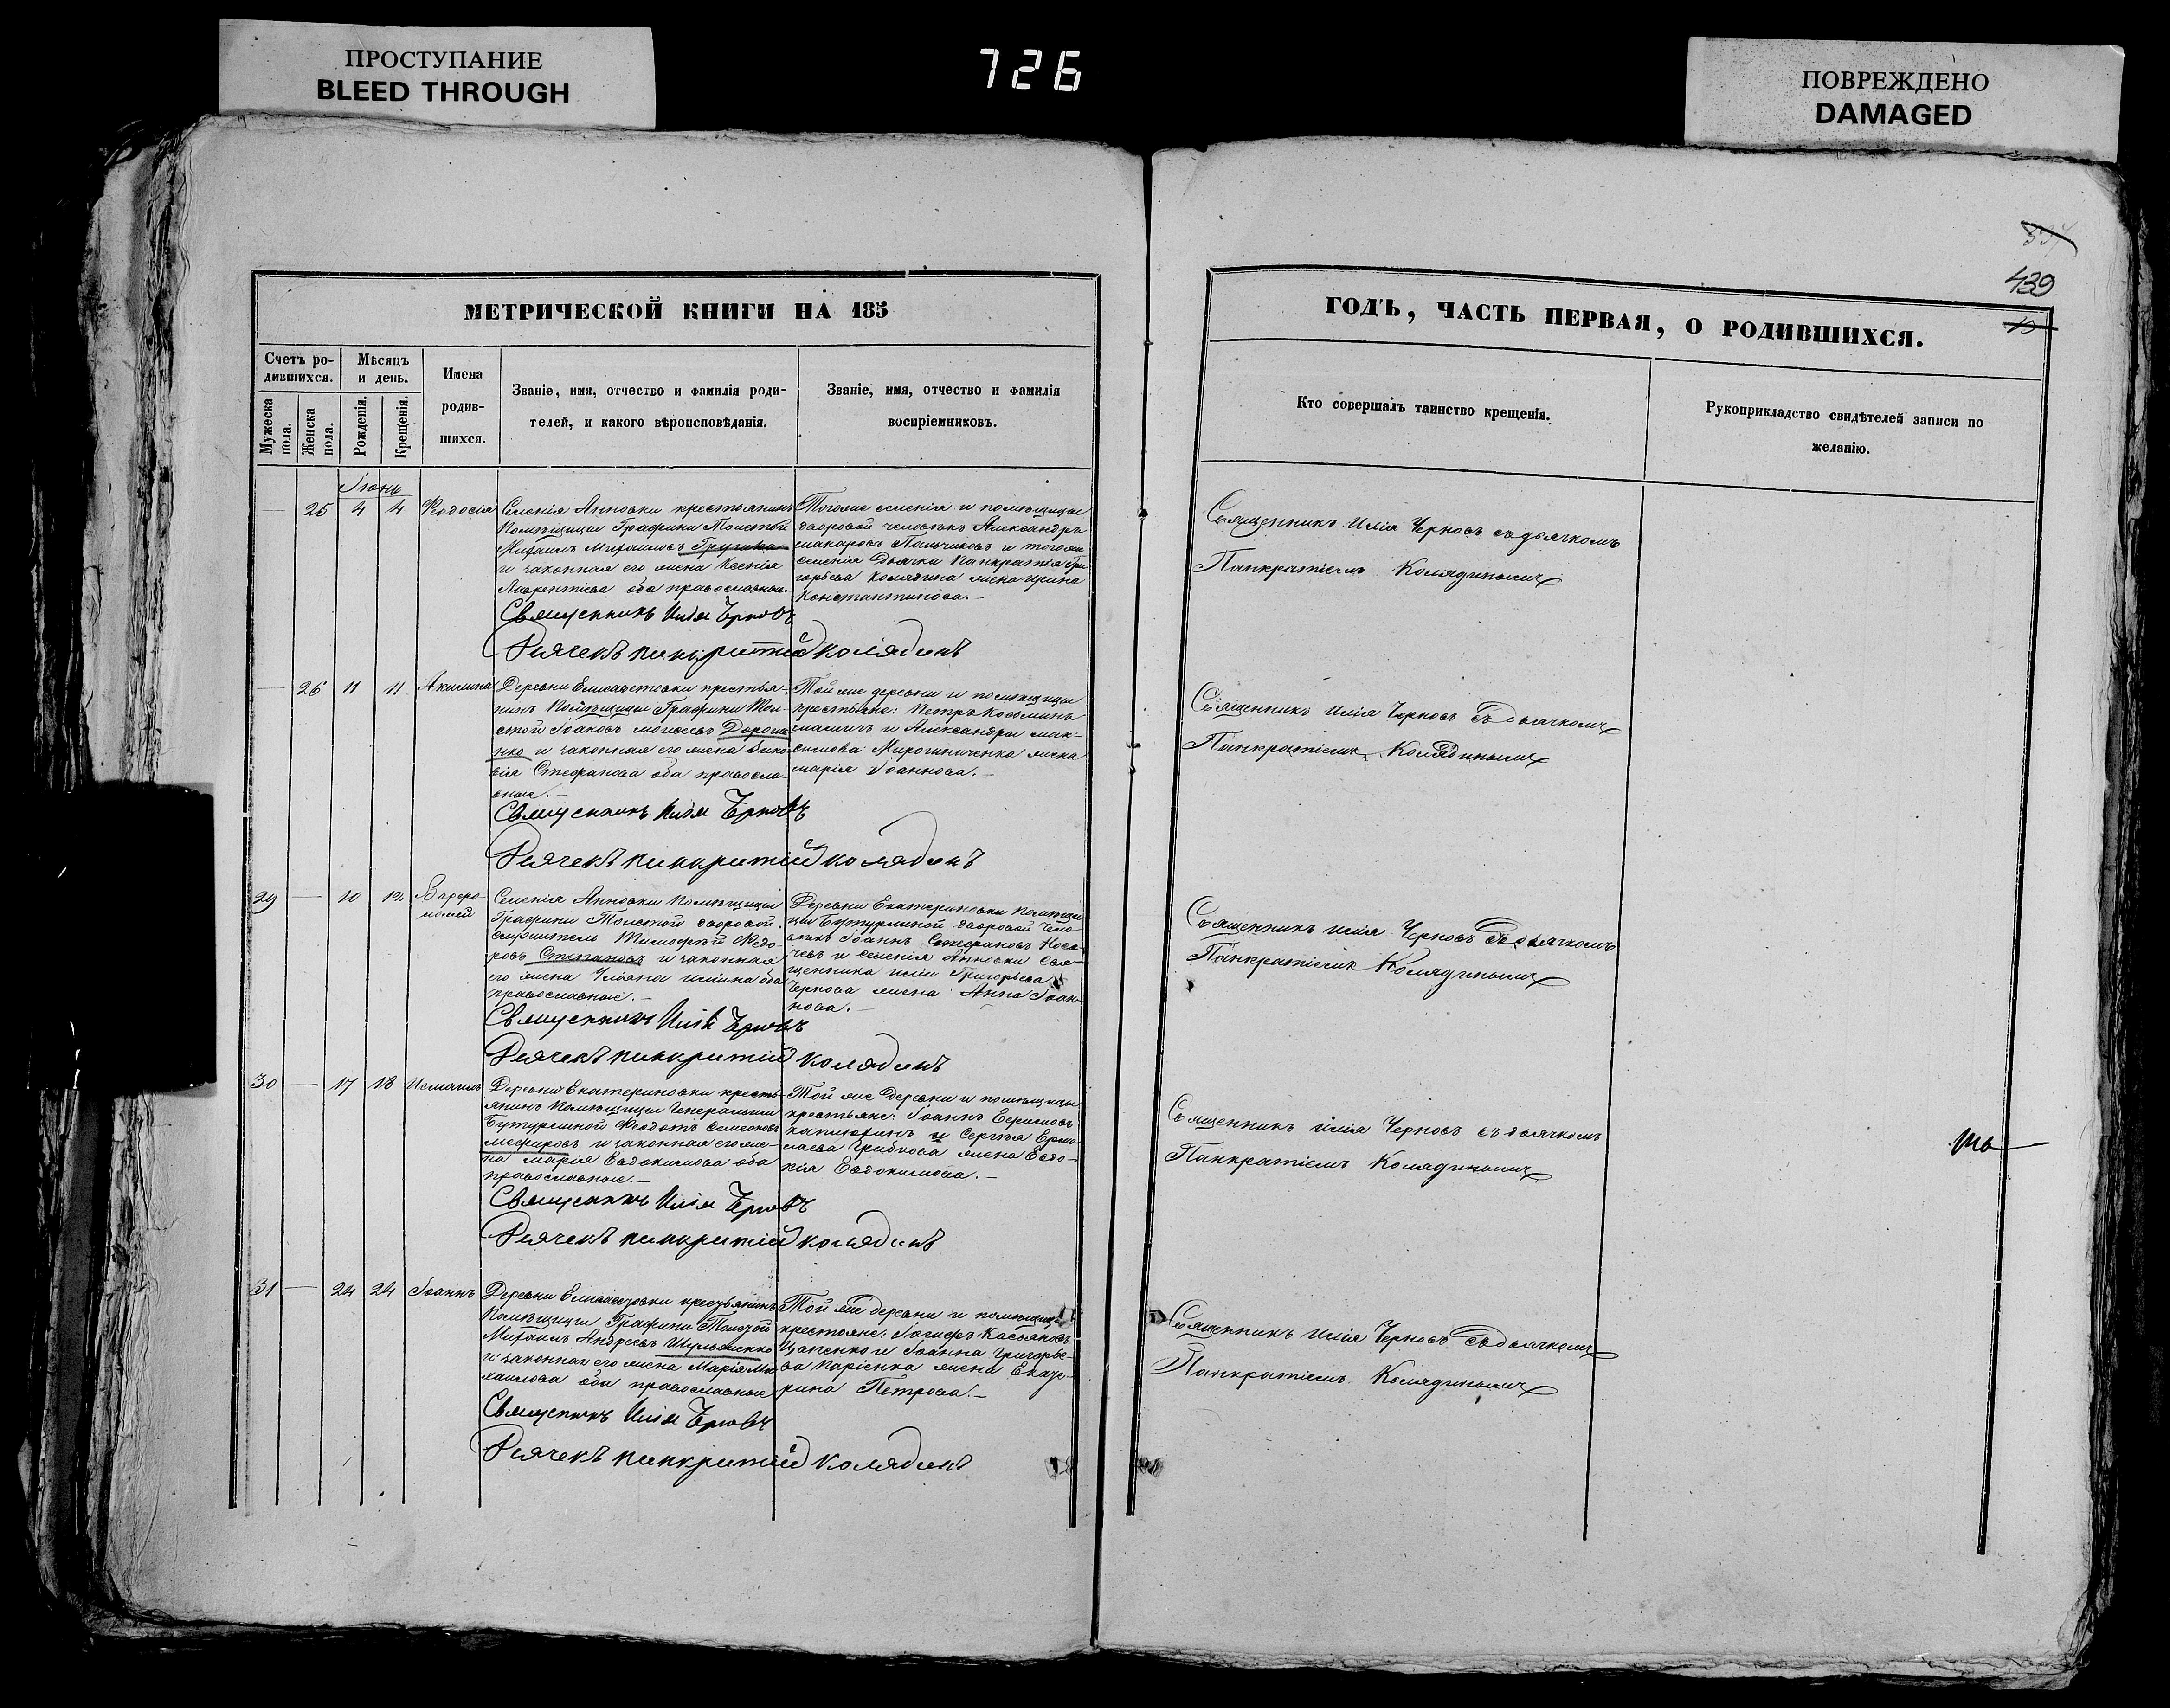 ПРОСТУПАНИЕ
BLEED THROUGH
726
ПОВРЕЖДЕНО
DAMAGED
439
МЕТРИЧЕСКОЙ КНИГИ НА 185
Счетъ ро-
дившихся.
Мѣсяцъ
и день.
Мужеска
пола.
Женска
пола.
Рожденія.
Крещенія.
Имена
родив-
шихся.
Званіе, имя, отчество и фамилія роди-
телей, и какого вѣроисповѣданія.
Званіе, имя, отчество и фамилія
воспріемниковъ.
Іюнь
25 4 4 Феодосія
Селенія Анновки крестьянинъ
Помѣщицы Графини Толстой
Михаилъ Михаиловъ
и законная его жена Ксенія
Лаврентіева оба православные.
Тогоже селенія и помѣщицы
дворовой человѣкъ Александръ
Макаровъ Пальчиковъ и тогоже
селенія Дьячка Панкратія Гри-
горьева Колядина жена Ирина
Константинова.
Священникъ Илія Черновъ
Дьячекъ Панкратій Колядинъ
26 11 11 Акилина
Деревни Елисаветовки крестья-
нинъ Помѣщицы Графини Тол-
стой Іаковъ
и законная его жена
Стефанова оба правосла-
вные.
Той же деревни и помѣщицы
крестьяне: Петръ Козьминъ
и Александра Мак-
симова Мирошниченка жена
Марія Іоаннова.
Священникъ Илія Черновъ
Дьячекъ Панкратій Колядинъ
29 — 10 12 Варфо-
ломей
Селенія Анновки Помѣщицы
Графини Толстой дворовой
Тимофей Федо-
ровъ Степановъ и законная
его жена Ульяна Ильина оба
православные.
Деревни Екатериновки Помѣщи-
цы Бутурлиной дворовой Чело-
вѣкъ Іоаннъ Стефановъ Коса-
чевъ и селенія Анновки Свя-
щенника Иліи Григорьева
Чернова жена Анна Іоан-
нова.
Священникъ Илія Черновъ
Дьячекъ Панкратій Колядинъ
30 — 17 18 Исмаилъ
Деревни Екатериновки кресть-
янинъ Помѣщицы Генеральши
Бутурлиной Феодотъ Семеоновъ
и законная его же-
на Марія Евдокимова оба
православные.
Той же деревни и помѣщицы
крестьяне: Іоаннъ Ефимовъ
и Сергѣя Ермо-
лаева Грибкова жена Евдо-
кія Евдокимова.
Священникъ Илія Черновъ
Дьячекъ Панкратій Колядинъ
31 — 24 24 Іоаннъ
Деревни Елисаветовки крестьянинъ
Помѣщицы Графини Толстой
Михаилъ Андреевъ Шульженко
и законная его жена Марія Ми-
хаилова оба православные
Той же деревни и помѣщицы
крестьяне: Іосифъ Касьяновъ
Цапенко и Іоанна Григорье-
ва Царіенка жена Екате-
рина Петрова.
Священникъ Илія Черновъ
Дьячекъ Панкратій Колядинъ
ГОДЪ, ЧАСТЬ ПЕРВАЯ, О РОДИВШИХСЯ.
Кто совершалъ таинство крещенія.
Рукоприкладство свидѣтелей записи по
желанію.
Священникъ Илія Черновъ съ дьячкомъ
Панкратіемъ Колядинымъ
Священникъ Илія Черновъ съ дьячкомъ
Панкратіемъ Колядинымъ
Священникъ Илія Черновъ съ дьячкомъ
Панкратіемъ Колядинымъ
Священникъ Илія Черновъ съ дьячкомъ
Панкратіемъ Колядинымъ
Священникъ Илія Черновъ съ дьячкомъ
Панкратіемъ Колядинымъ